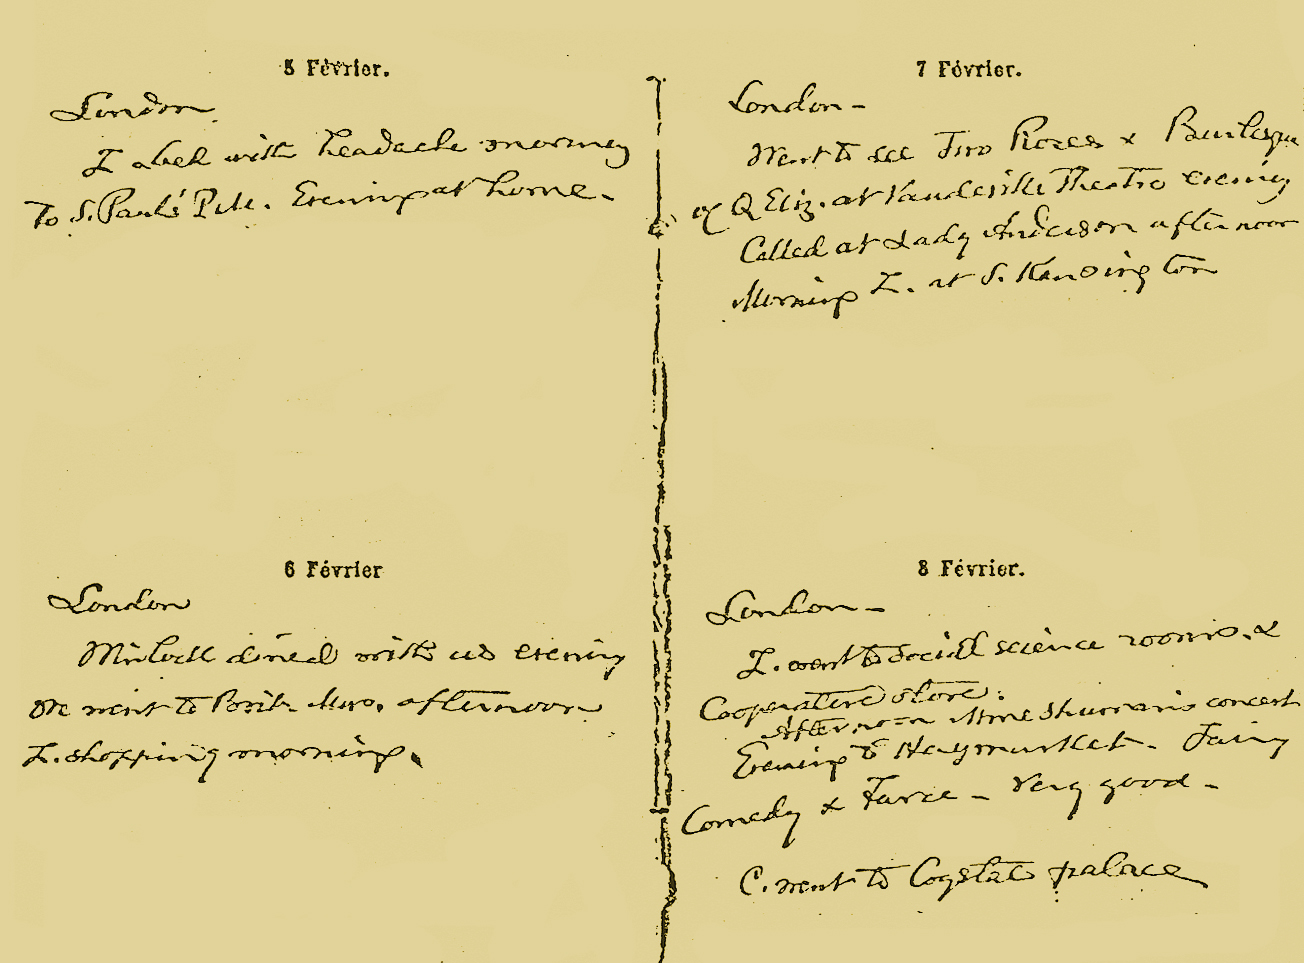 5 Février.
London
I abed with headache morning
To S. Paul's Evening at home.
6 Février
London
dined with us evening
We went to Brit. Mus. afternoon
I. shopping morning.
7 Février.
London -
Went to see Two Roses & Burlesque
of Q Eliz. at Vaudeville Theatre evening
Called at Lady Anderson afternoon
Morning I. at S. Kensington
8 Février.
London -
I. went to Social science rooms. &
Cooperative store.
Afternoon Mme concert
Evening to Haymarket. Fairy
Comedy & Farce - Very good -
C. went to palace